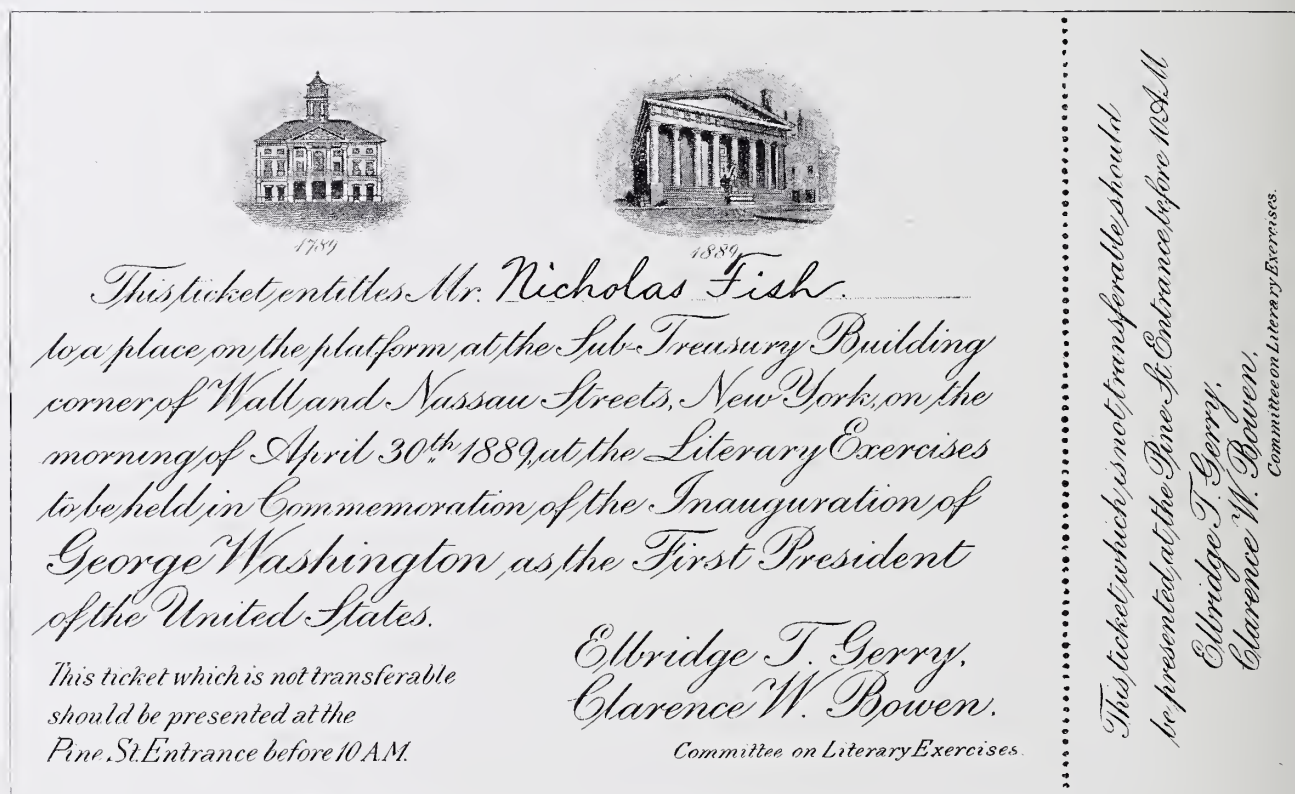 1789
1889
This ticket entitles Mr. Nicholas Fish.
to a place on the platform at the Sub-Treasury Building
corner of Wall and Nassau Streets, New York, on the
morning of April 30th 1889, at the Literary Exercises
to be held in Commemoration of the Inauguration of
George Washington as the First President
of the United States.
This ticket which is not transferable
should be presented at the
Pine St. Entrance before 10 A.M.
Elbridge T. Gerry.
Clarence W. Bowen.
Committee on Literary Exercises.
This ticket which is not transferable should
be presented at the Pine St. Entrance before 10 A.M
Elbridge T. Gerry.
Clarence W. Bowen.
Committee on Literary Exercises.